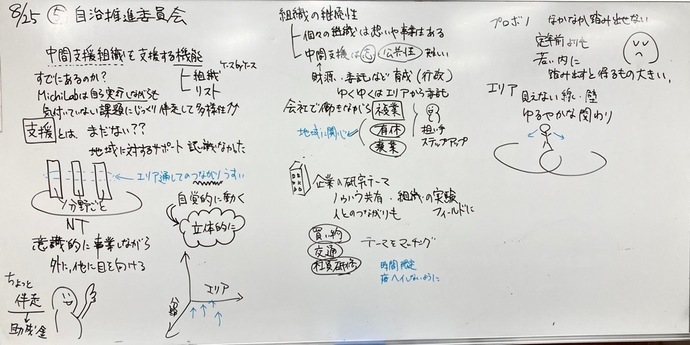 8/25 ⑤ 自治推進委員会
中間支援組織を支援する機能
すでにあるのか?
組織
ケースbyケース
リスト
MichiLabは自ら実介しながらも
気付いていない課題にじっくり伴走して多様性
支援とは、まだない??
地域に対するサポート 試識なかった
エリア通してのつながりうすい
分野ごと
NT
自覚的に動く
立体的に
意識的に事業しながら
外に、他に目を向ける
ちょっと
伴走
助成金
分野
エリア
組織の継続性
個々の組織は想いや事情ある
中間支援は 公共性
財源、委託など 育成(行政)
ゆくゆくはエリアから委託
会社で働きながら 授業
地域に関心
有休
兼業
担い手
ステップアップ
企業の研究テーマ
ノウハウ共有・組織の実験
フィールドに
人とのつながりも
買い物
交通
社員研修
テーマをマッチング
時間限定
プロボノ なかなか踏み出せない
定年前よりも
若い内に
踏み出すと得るもの大きい。
エリア 見えない線・壁
ゆるやかな関わり